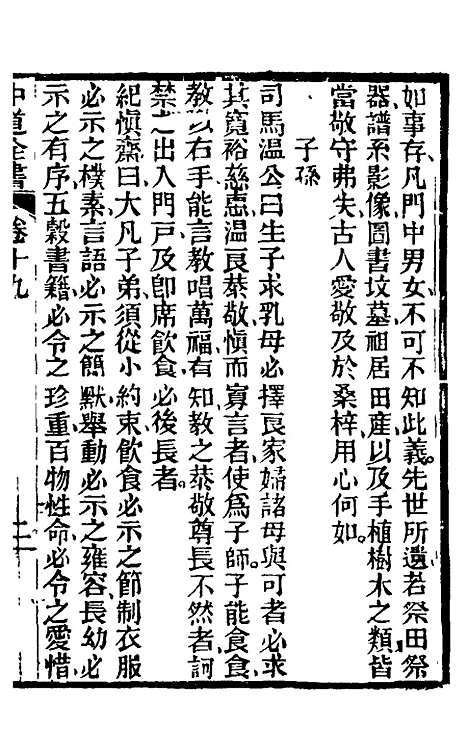 如事存凡門中男女不可不知此義先世所遺若祭田祭
器譜系影像圖書墳墓祖居田產以及手植樹木之類皆
當敬守弗失古人愛敬及於桑梓用心何如
子孫
司馬溫公曰生子求乳母必擇良家婦諸母與可者必求
其寬裕慈惠溫良恭敬愼而寡言者使爲子師子能食食
教以右手能言教唱萬福有知教之恭敬尊長不然者訶
禁之出入門戸及卽席飲食必後長者
紀愼齋曰大凡子弟須從小約束飲食必示之節制衣服
必示之樸素言語必示之簡默舉動必示之雍容長幼必
示之有序五穀書籍必令之珍重百物性命必令之愛惜
中道全書 卷十九